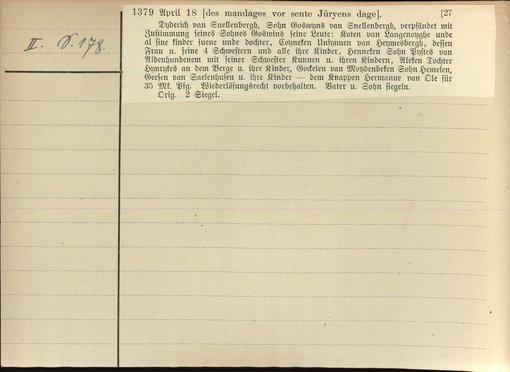 II. S. 178.
1379 April 18 [des mandages vor sente Jüryens dage]. [27
Dyderich van Snellenbergh, Sohn Goswyns van Snellenbergh, verpfändet mit
Zustimmung seines Sohnes Goswins seine Leute: Koten van Langenoyghe unde
al sine kinder suene unde dochter, Coyneken Unsynnen van Heymesbergh, dessen
Frau u. seine 4 Schwestern und alle ihre Kinder, Henneken Sohn Pystes van
Aldenhundenem mit seiner Schwester Kunnen u. ihren Kindern, Aleken Tochter
Hynrykes an dem Berge u. ihre Kinder, Gockelen van Moydenbeken Sohn Hemelen,
Geesen van Saelenhusen u. ihre Kinder — dem Knappen Hermanne van Ole für
35 Mk. Pfg. Wiederlösungsrecht vorbehalten. Vater u. Sohn siegeln.
Orig. 2 Siegel.